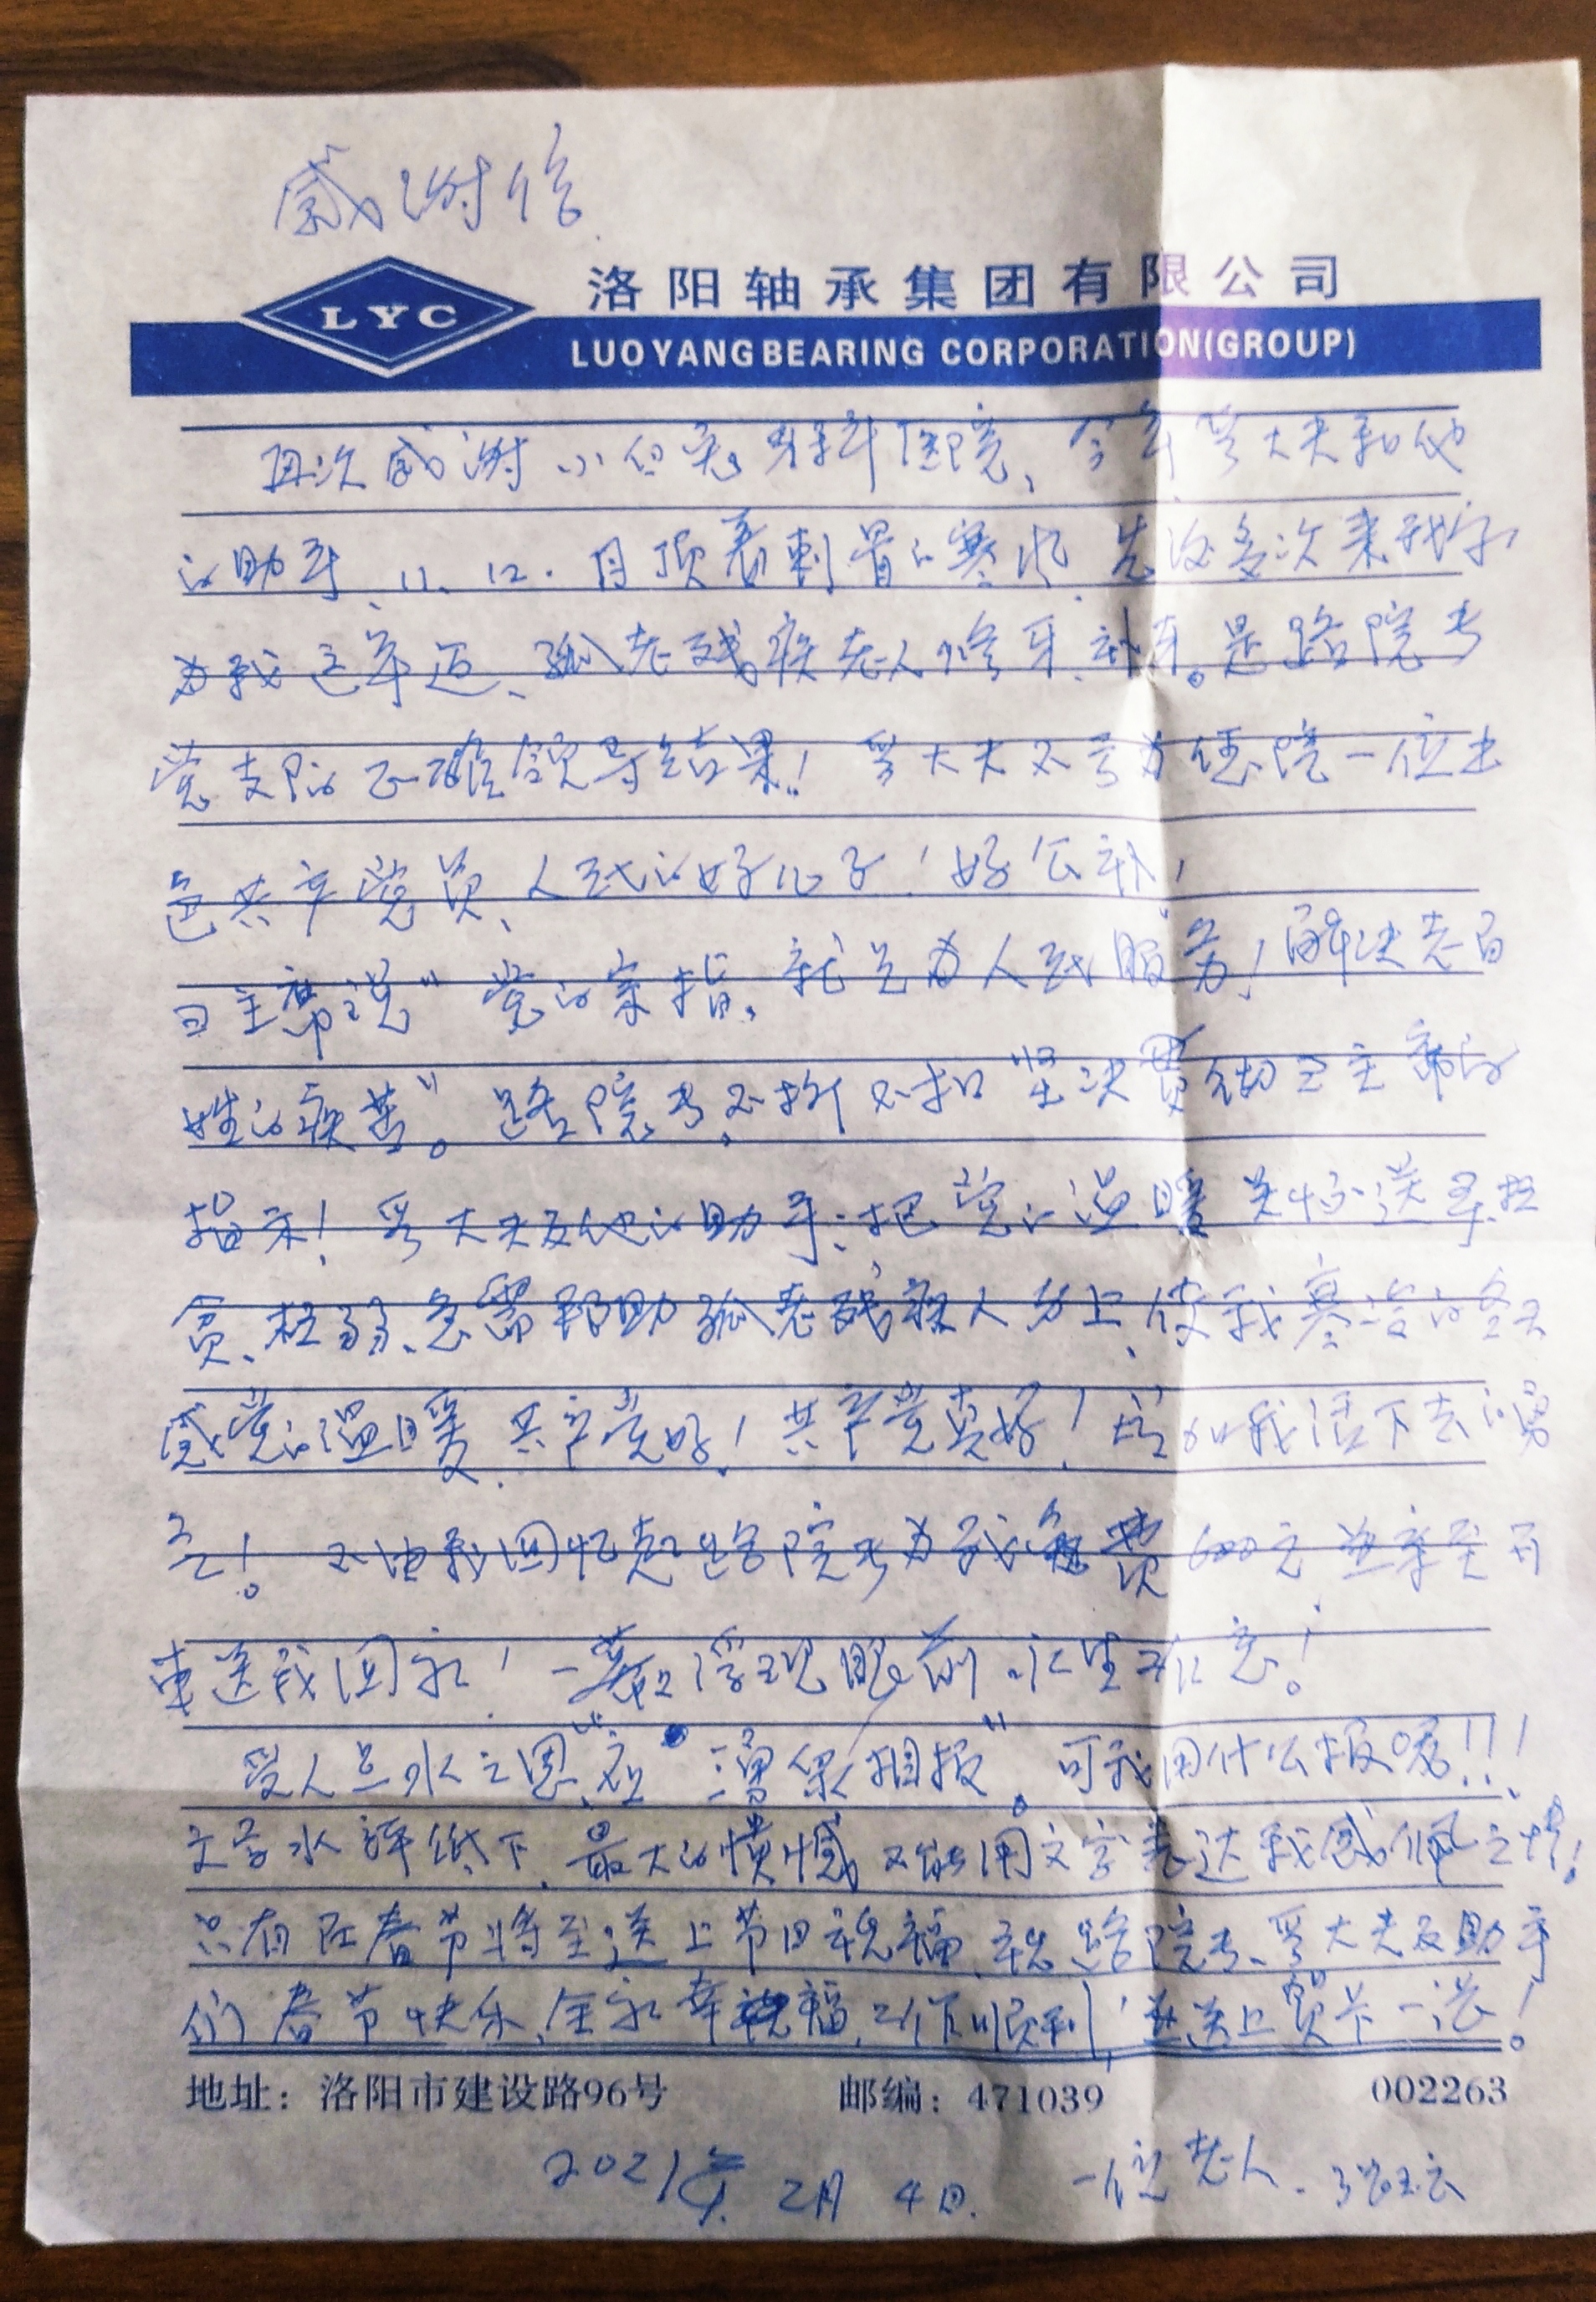 感谢信
LYC
洛阳轴承集团有限公司
LUOYANG BEARING CORPORATION(GROUP)
再次感谢小白兔牙科医院、今年 大夫和他
的助手、11、12.月顶着刺骨的寒风,先后多次来我家
为我这年迈、孤老残疾老人修牙、补牙。是路院长
党支部的正确领导结果! 大夫不亏为医院一位出
色共产党员、人民的好儿子!好公仆!
习主席说"党的宗指,就是为人民服务!解决老百
姓的疾苦"。路院长,不折不扣"坚决贯彻习主席的
指示! 大夫及他的助手;把党的温暖关怀送至
贫、 弱、急需帮助孤老残疾人身上,使我寒冷的冬天
感党的温暖,共产党好!共产党真好!增加我活下去的勇
气! 不由我回忆起路院长为我 费600元并亲至开
车送我回家!一幕幕浮现眼前,永生难忘!
受人点水之恩,应"涌泉相报"。可我用什么报答!!!
文字水评低下,最大的愤憾,不能用文字表达我感佩之情!
只有在春节将至送上节日祝福,祝路院长、 大夫及助手
们春节快乐、全家幸福,工作顺利,并送上贺卡一张!
地址:洛阳市建设路96号 邮编:471039 002263
2021年2月4日. 一位老人.张玉云